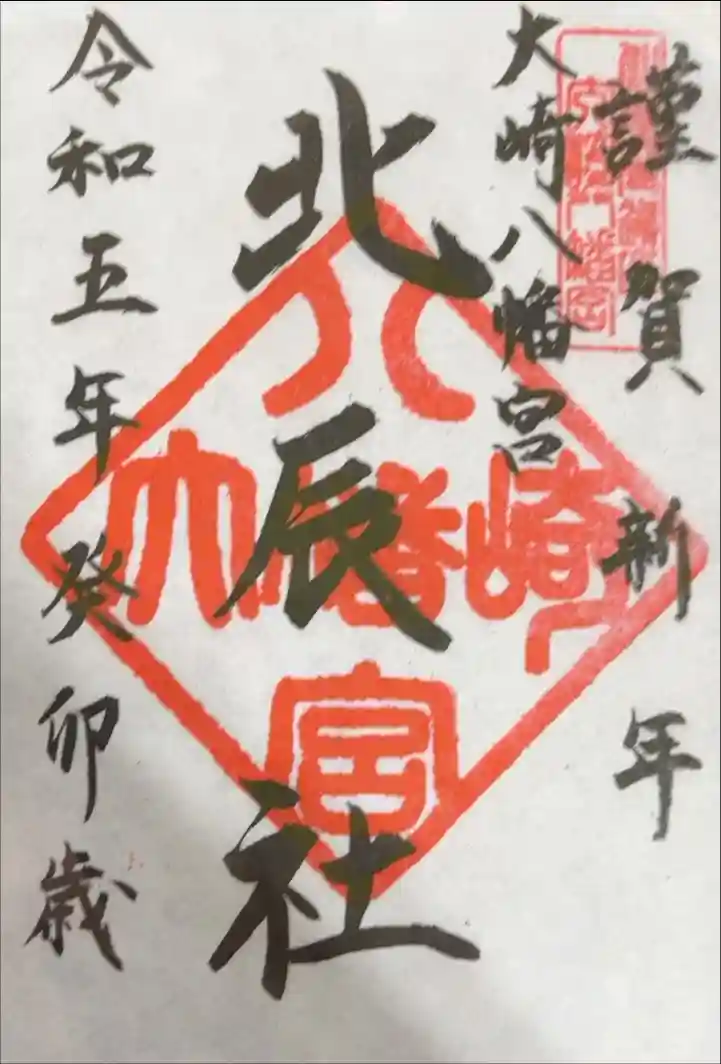 謹賀新年
大崎八幡宮
北辰社
令和五年癸卯歳
大崎八幡宮